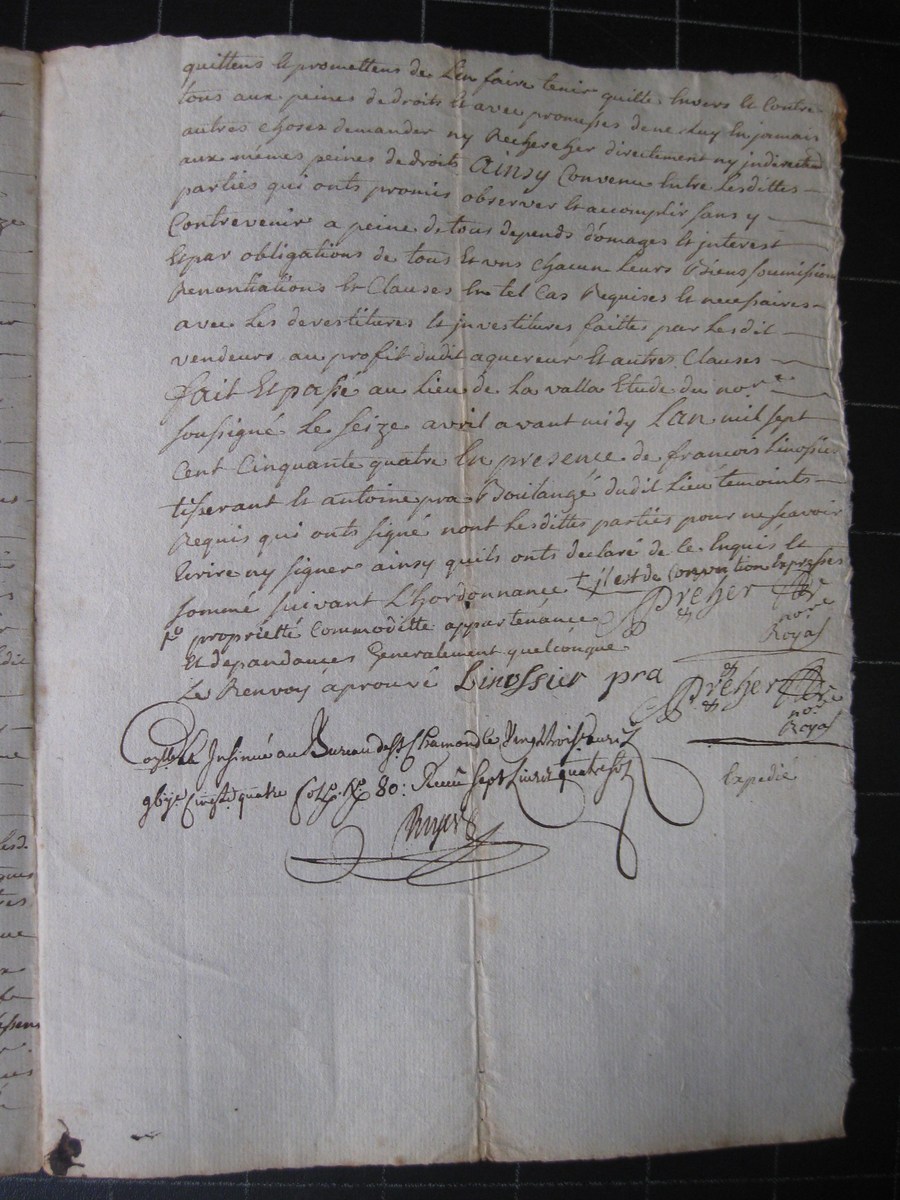 quittens et promettens de Len faire tenir quitte Envers et Contre
tous aux peines de droits Et avec promesses de ne Luy En jamais
autres choses demander ny Rechercher directement ny indirectem
aux mêmes peines de droits Ainsy Convenu Entre Lesdittes
parties qui onts promis observer Et accomplir sans y
Contrevenir a peine de tous depends domages Et interest
Et par obligations de tous Et uns chacun Leurs Biens soumission
Renontiations Et Clauses En tel Cas Requises Et necessaires
avec Les devestitures Et investitures faittes par Lesdit
vendeurs au profit dudit aquereur Et autres Clauses
fait Et passé au Lieu de La valla Etude du nore
soussigné Le seize avril avant midy Lan mil sept
Cent Cinquante quatre En presence de francois Linossier
tisserant Et antoine pra Boulangé dudit Lieu temoints
Requis qui onts signé nont Lesdittes parties pour ne scavoir
Ecrire ny signer ainsy quils onts declaré de ce Enquis Et
sommé suivant L'hordonnance + il est de Convention Expresses
propriettè Commoditte appartenance
Et dependances Generalement quelconque
Le Renvoy aprouvé Linossier pra
nore
Royal
nore
Royal
Insinué au Bureau de St Chamond le Vingt trois avril
Cinqte quatre 80: Receu sept Livres quatre sols
Expedié